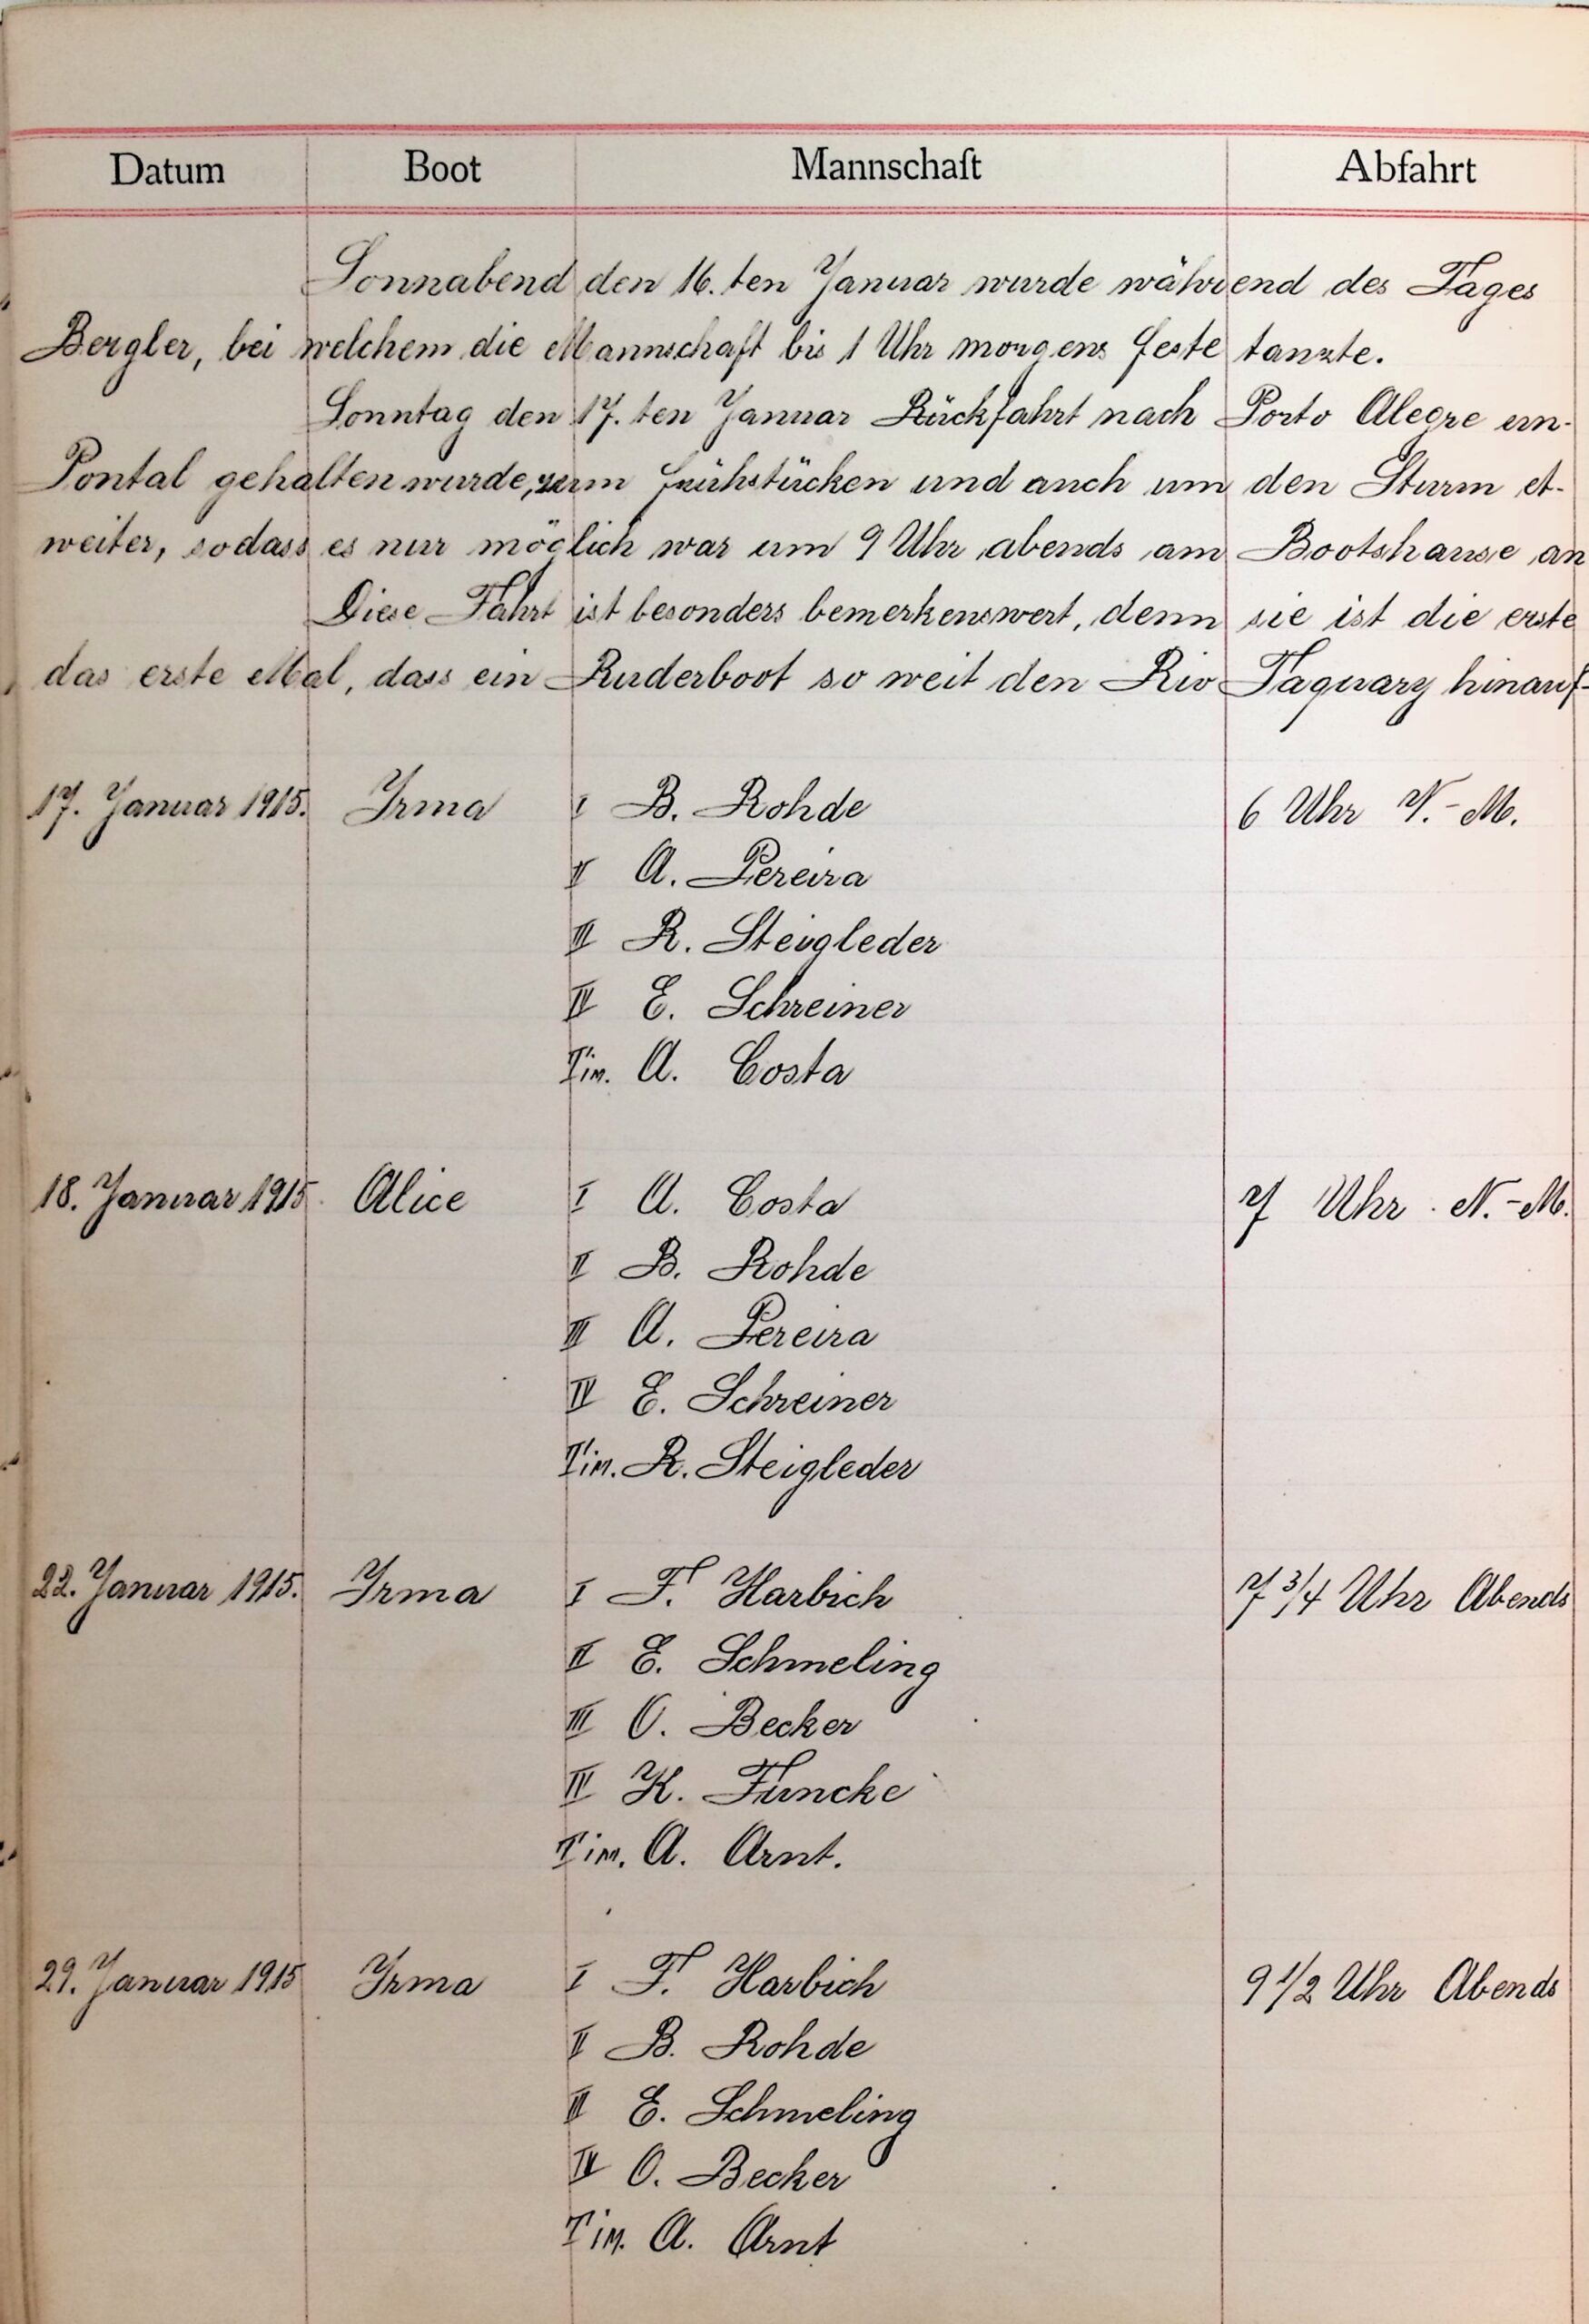 Datum Boot Mannschaft Abfahrt
Sonnabend den 16.ten Januar wurde während des Tages
Bergler, bei welchem die Mannschaft bis 1 Uhr morgens feste tanzte.
Sonntag den 17.ten Januar Rückfahrt nach Porto Alegre un-
Pontal gehalten wurde, zum frühstücken und auch um den Sturm et-
weiter, sodass es nur möglich war um 9 Uhr abends am Bootshause an
Diese Fahrt ist besonders bemerkenswert, denn sie ist die erste
das erste Mal, dass ein Ruderboot so weit den Rio Taquary hinauf-
17. Januar 1915. Irma I B. Rohde 6 Uhr N.-M.
II A. Pereira
III R. Steigleder
IV E. Schreiner
Tim. A. Costa
18. Januar 1915. Alice I A. Costa 7 Uhr N.-M.
II B. Rohde
III A. Pereira
IV E. Schreiner
Tim. R. Steigleder
22. Januar 1915. Irma I F. Harbich 7 3/4 Uhr Abends
II E. Schmeling
III O. Becker
IV K. Funcke
Tim. A. Arnt.
29. Januar 1915 Irma I F. Harbich 9 1/2 Uhr Abends
II B. Rohde
III E. Schmeling
IV O. Becker
Tim. A. Arnt